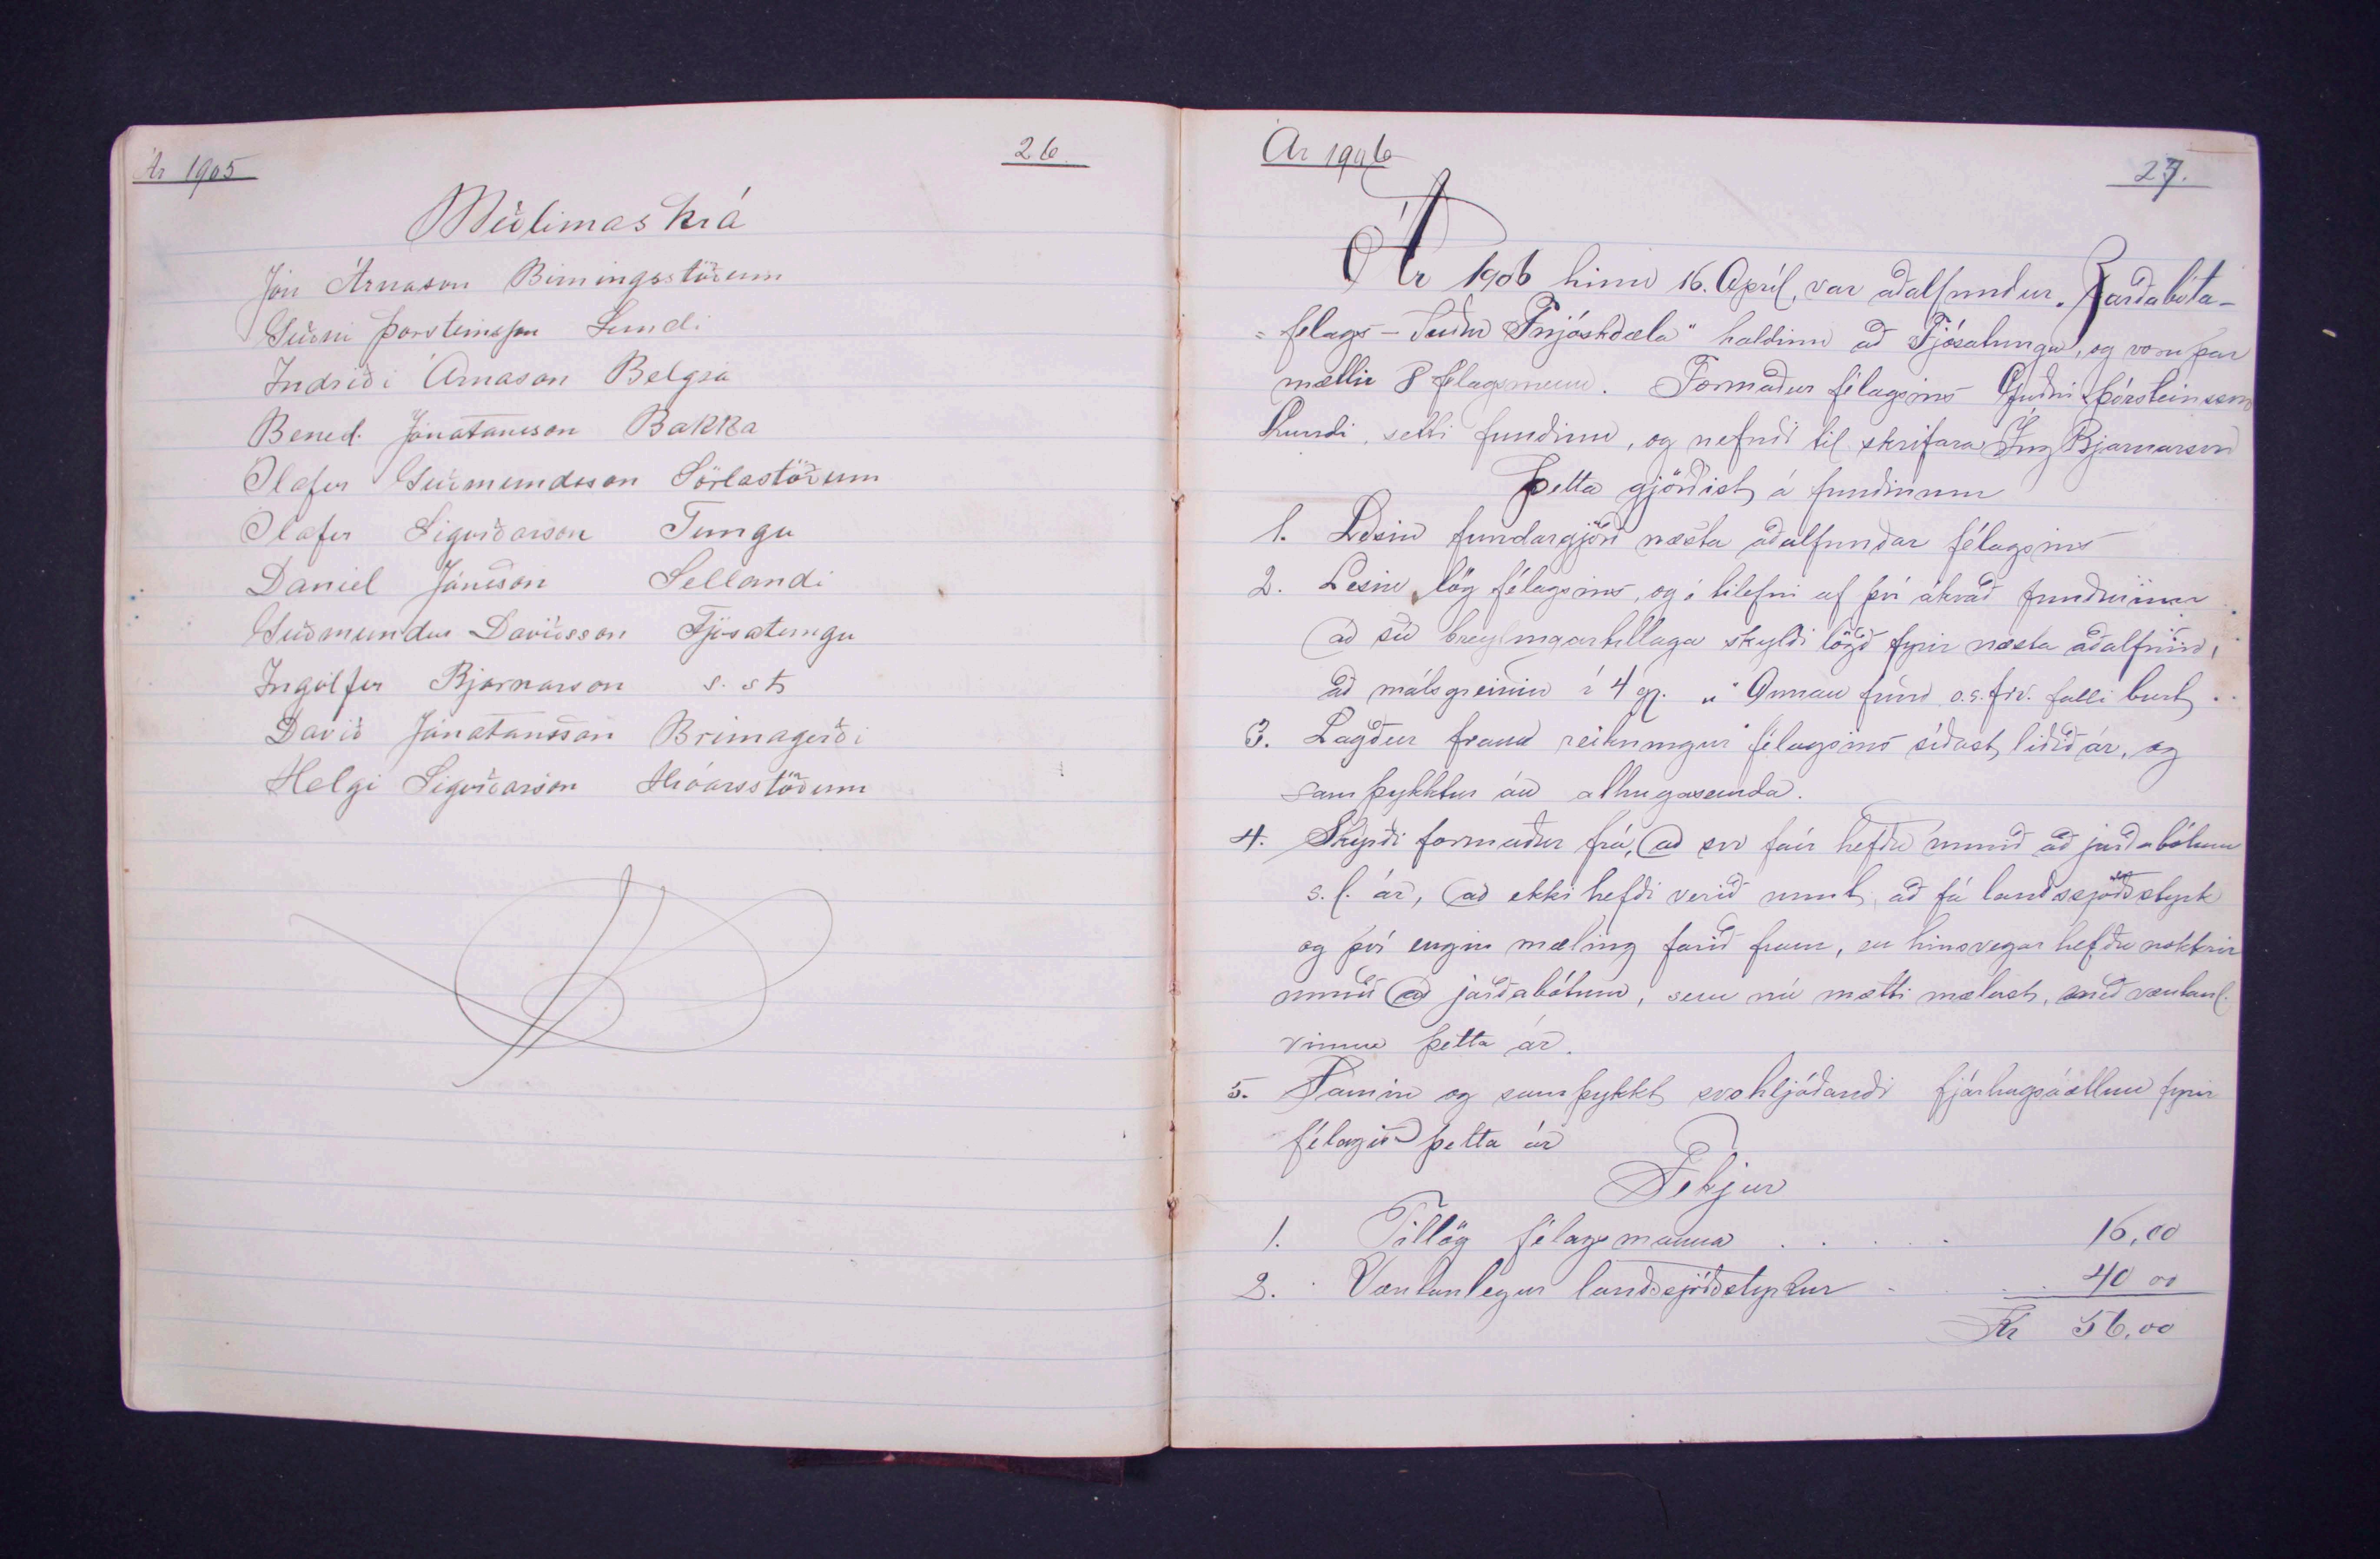 Ár 1905
26
Meðlimaskrá
Jón Árnason Birningsstöðum
Guðni Þorsteinsson Lundi
Indriði Árnason Belgsá
Bened. Jónatansson Bakka
Olafur Guðmundsson Sörlastöðum
Olafur Sigurðarson Tungu
Daniel Jónsson Sellandi
Guðmundur Davíðsson Fjósatungu
Ingólfur Bjarnarson s. st
Davíð Jónatansson Brúnagerði
Helgi Sigurðarson Hróarsstöðum
Ár 1906
27.
Ár 1906 hinn 16. Apríl, var aðalfundur. Jarðabóta-
=félags - Suður Fnjóskdæla" haldinn að Fjósatungu, og voru þar
mættir 8 félagsmenn. Formaður félagsins Guðni Þorsteinsson
Lundi, setti fundinn, og nefndi til skrifara Ing Bjarnarson
Þetta gjörðist á fundinum
1. Lesin fundargjörð næsta aðalfundar félagsins
2. Lesin lög félagsins, og í tilefni af því ákvað fundurinn
að sú breytingartillaga skyldi lögð fyrir næsta aðalfund,
að málsgreinin í 4 gr. „Annan fund o.s.frv. falli burt.
3. Lagður fram reikningur félagsins síðast liðið ár, og
samþykktur án athugasemda.
4. Skýrði formaður frá, að svo fáir hefðu unnið að jarðabótum
s.l. ár, að ekki hefði verið unnt að fá landssjóðsstyrk
og því engin mæling farið fram, en hinsvegar hefðu nokkrir
unnið að jarðabótum, sem nú mætti mælast, með væntanl.
vinnu þetta ár.
5. Samin og samþykkt svohljóðandi fjárhagsáætlun fyrir
félagið þetta ár
Tekjur
1. Tillög félagsmanna . . . . . 16,00
2. Væntanlegur landssjóðsstyrkur . . . 40 00
Kr 56,00